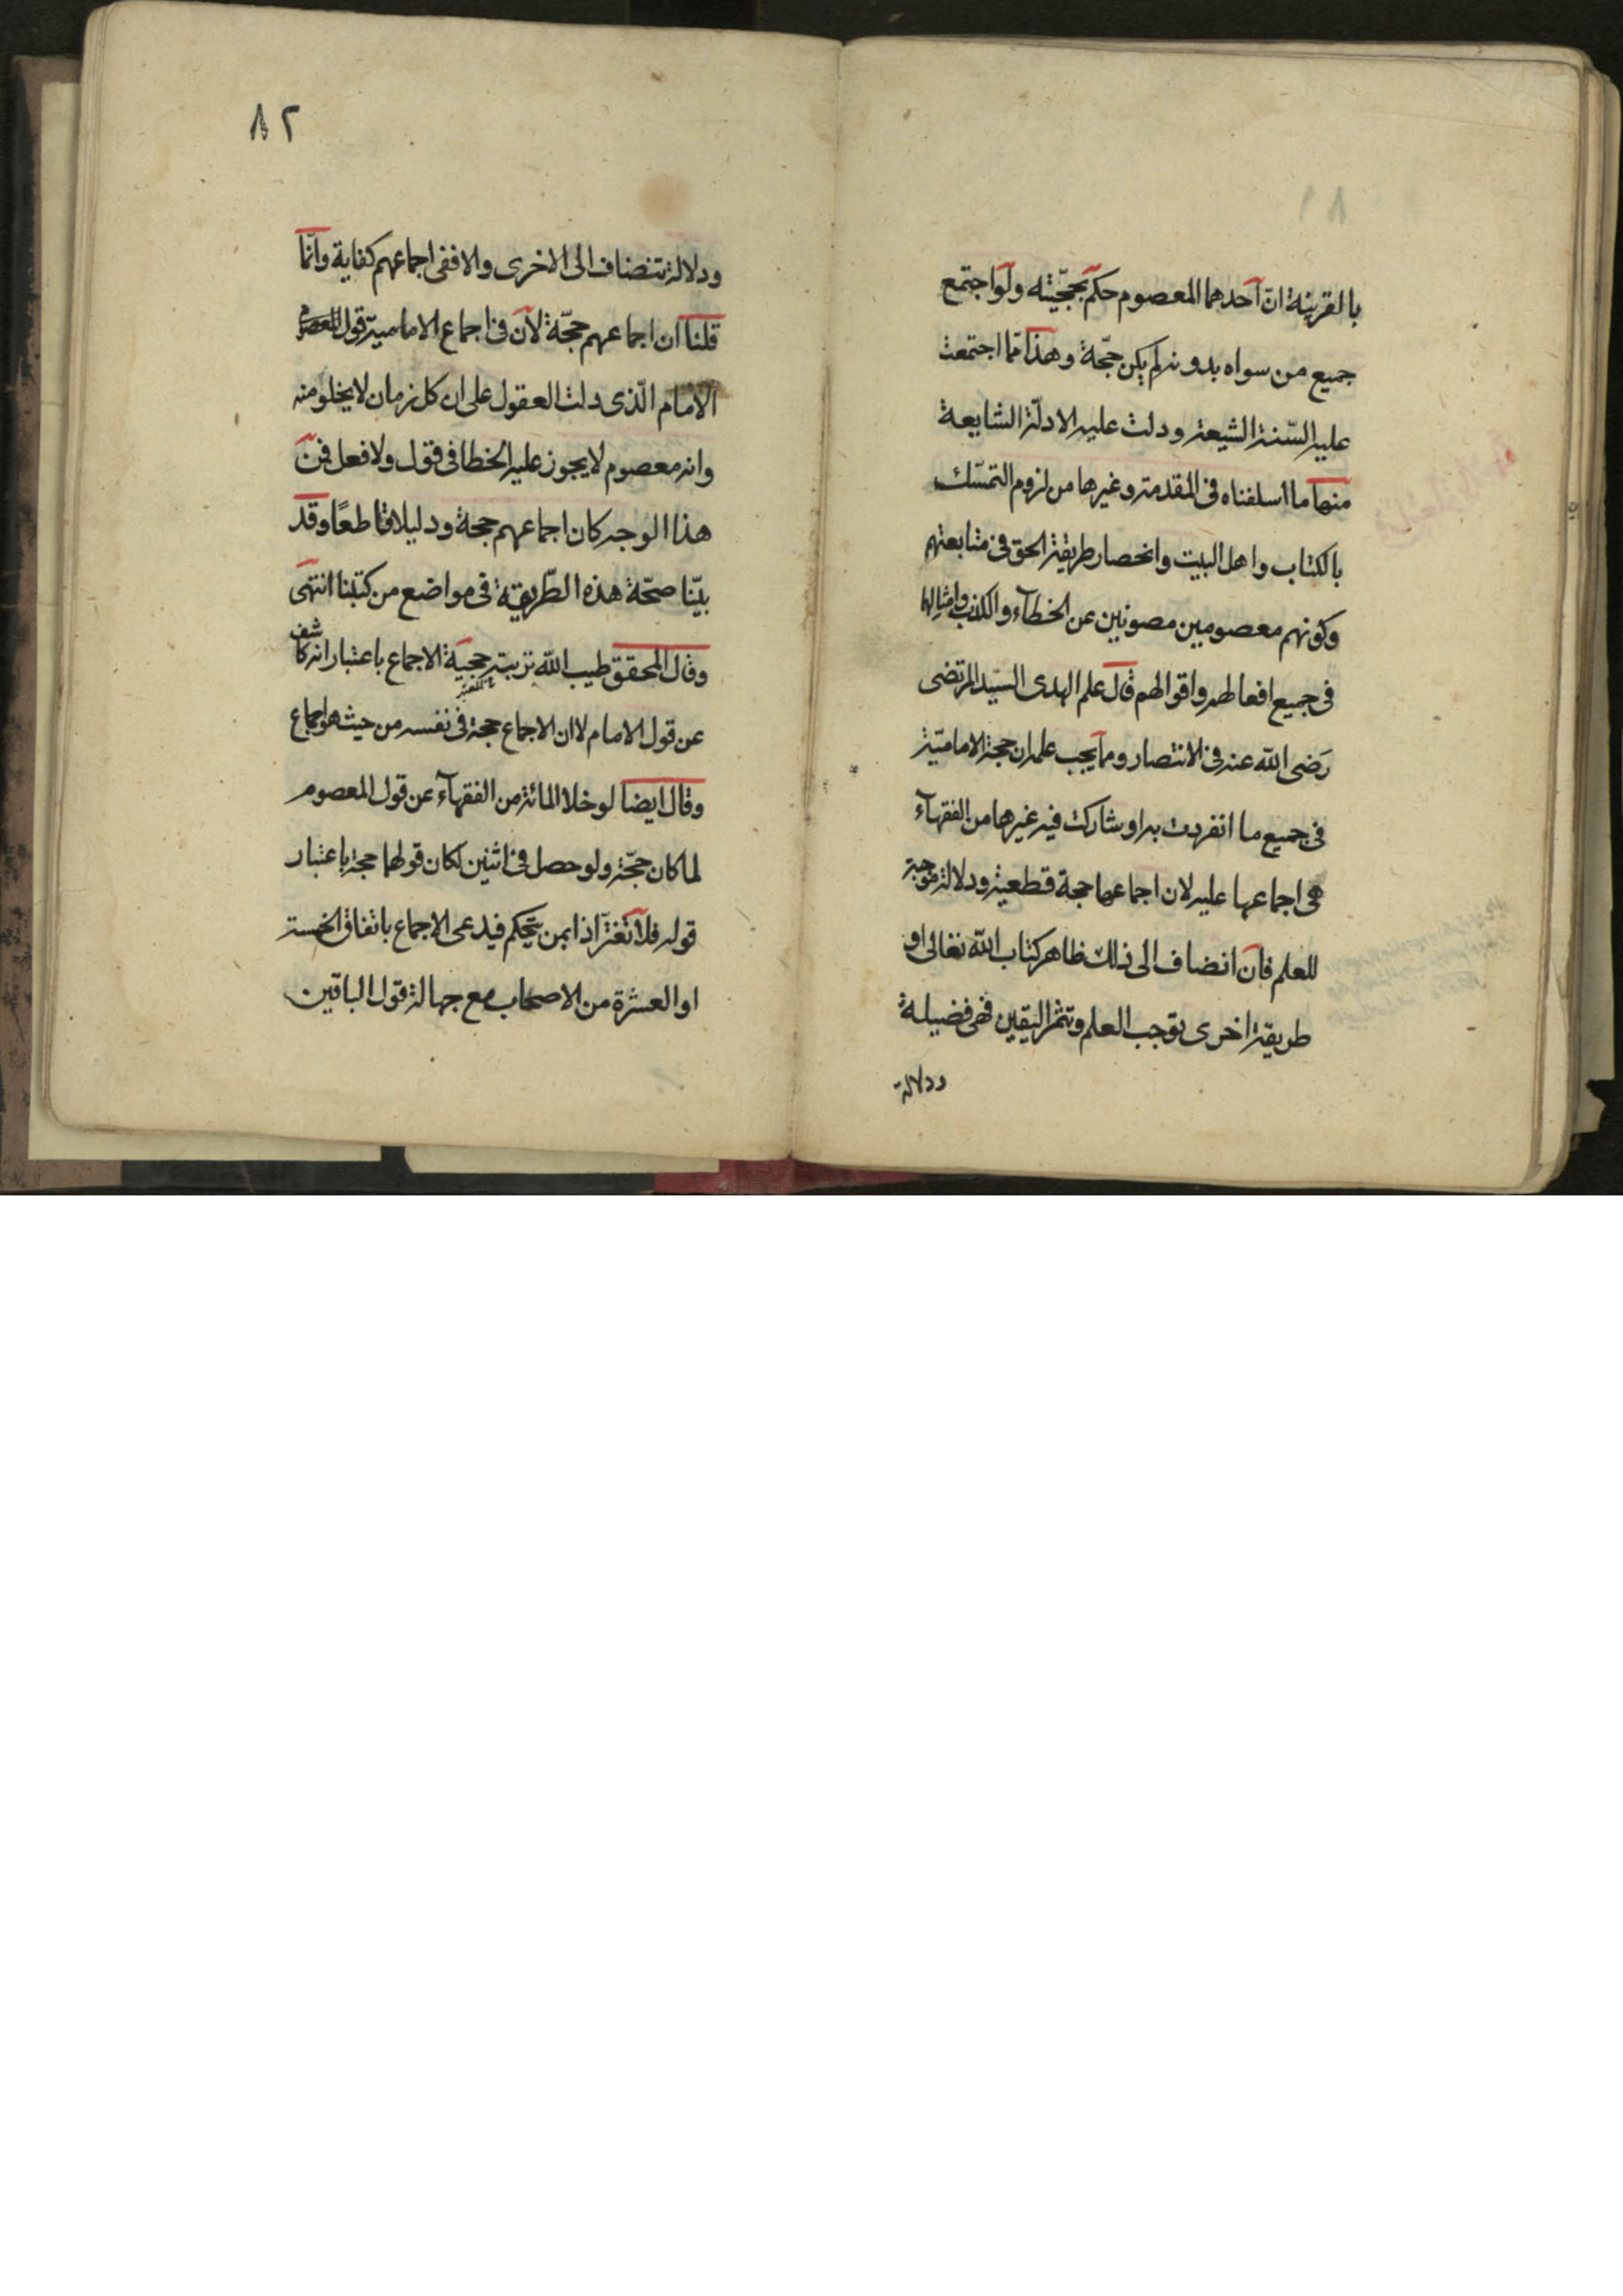 بالقرينة انّ احدهما المعصوم حكم بحجّيته ولو اجتمع
جميع من سواه بدونه لم يكن حجّة وهذا ممّا اجتمعت
عليه السّنة الشيعة ودلت عليه الادلّة الشايعة
منها ما اسلفناه فى المقدمة وغيرها من لزوم التمسّك
بالكتاب واهل البيت وانحصار طريقة الحق فى متابعتهم
وكونهم معصومين مصونين عن الخطاء والكذب وامثالها
فى جميع افعالهم واقوالهم قال علم الهدى السيّد المرتضى
رَضى الله عنه فى الانتصار ومما يجب علمه ان حجة الاماميّة
فى جميع ما انفردت به او شاركت فيه غيرها من الفقهآء
هى اجماعها عليه لان اجماعها حجة قطعية ودلالة موجبة
للعلم فان انضاف الى ذلك ظاهر كتاب الله تعالى او
طريقة اخرى توجب العلم وتثمر اليقين فهى فضيلة
ودلالة
٨٢
ودلالة تنضاف الى الاخرى والا ففى اجماعهم كفاية وانّما
قلنا ان اجماعهم حجّة لان فى اجماع الامامية قول
الامام الّذى دلت العقول على ان كل زمان لا يخلو منه
وانه معصوم لا يجوز عليه الخطا فى قول ولا فعل فمن
هذا الوجه كان اجماعهم حجة ودليلا قاطعًا وقد
بيّنا صحّة هذه الطّريقة فى مواضع من كتبنا انتهى
وقال المحقق طيب الله تربته حجية الاجماع باعتبار انه كاشف
عن قول الامام لا ان الاجماع حجة فى نفسه من حيث هو اجماع
وقال ايضا لو خلا المائة من الفقهآء عن قول المعصوم
لما كان حجّة ولو حصل فى اثنين لكان قولهما حجة باعتبار
قوله فلا تغتر اذا بمن يتحكم فيدعى الاجماع باتفاق الخمسة
او العشرة من الاصحاب مع جهالة قول الباقين